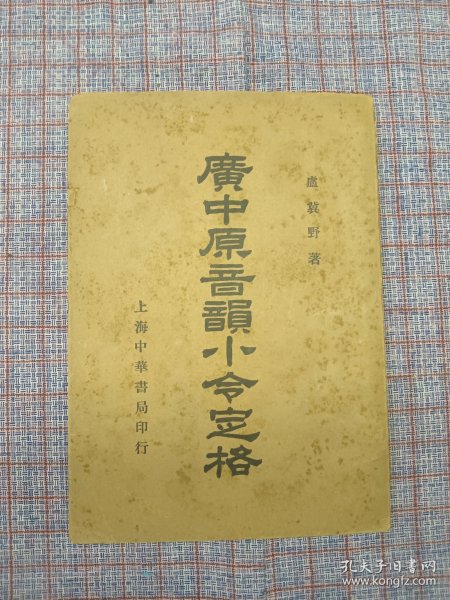 盧冀野著
廣中原音韻小令定格
上海中華書局印行
孔夫子旧书网
www.kongfz.com